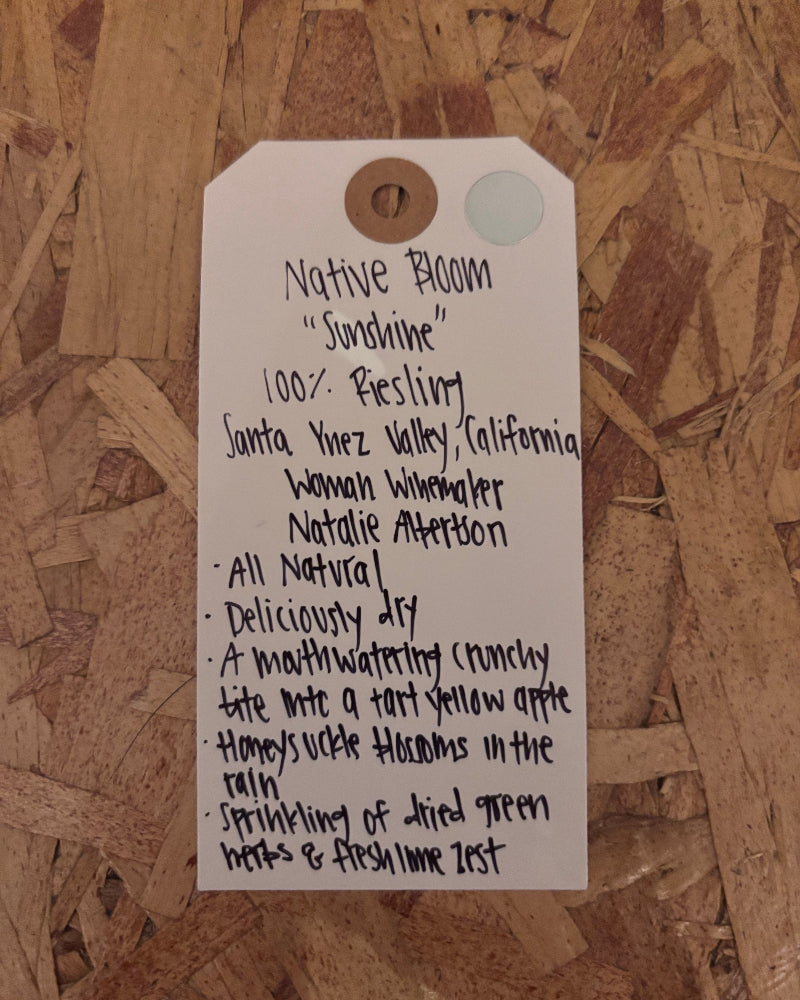 Native Bloom
"Sunshine"
100% Riesling
Santa Ynez Valley, California
Woman Winemaker
Natalie Albertson
· All Natural
· Deliciously dry
· A mouthwatering crunchy
bite into a tart yellow apple
· Honeysuckle blossoms in the
rain
· Sprinkling of dried green
herbs & fresh lime zest